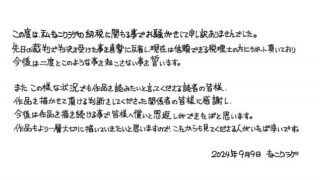 この度は、私ねこクラゲの納税に関する事でお騒がせして申し訳ありませんでした。
先日の裁判で判決を受けた事を真摯に反省し、現在は信頼できる税理士の方にサポート頂いており
今後は二度とこのような事を起こさない事を誓います。
また この様な状況でも作品を読みたいと言ってくださる読者の皆様、
作品を描かせて頂ける判断をしてくださった関係者の皆様に感謝し、
今後は作品を描き続ける事で皆様へ償いと恩返しができたらばと思います。
作品もより一層大切に描いていきたいと思いますので、これからも見てくださる人がいれば幸いです。
2024年9月9日 ねこクラゲ